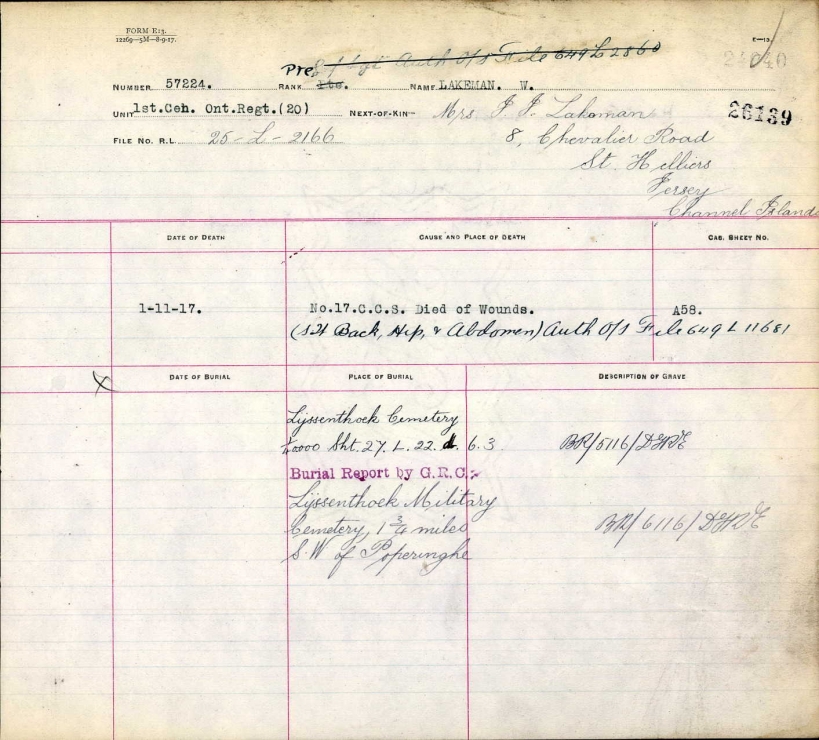 FORM E13.
12269—5M—8-9-17.
E—13
Auth O/S File 649 L 2860
26139
NUMBER 57224. RANK Pte. NAME LAKEMAN. W.
UNIT 1st.Cen. Ont.Regt.(20) NEXT-OF-KIN Mrs J. J. Lakeman
FILE NO. R.L. 25-L-2166 8, Chevalier Road
St. Hilliers
Jersey
Channel Islands
DATE OF DEATH CAUSE AND PLACE OF DEATH CAS. SHEET NO.
1-11-17. No.17.C.C.S. Died of Wounds. A58.
Back, Hip, & Abdomen) Auth O/S File 649 L 11681
X DATE OF BURIAL PLACE OF BURIAL DESCRIPTION OF GRAVE
Lijssenthoek Cemetery
Sht. 27. L. 22. d. 6.3
Burial Report by G.R.C.
Lijssenthoek Military
Cemetery, 1 3/4 miles
S.W of Poperinghe